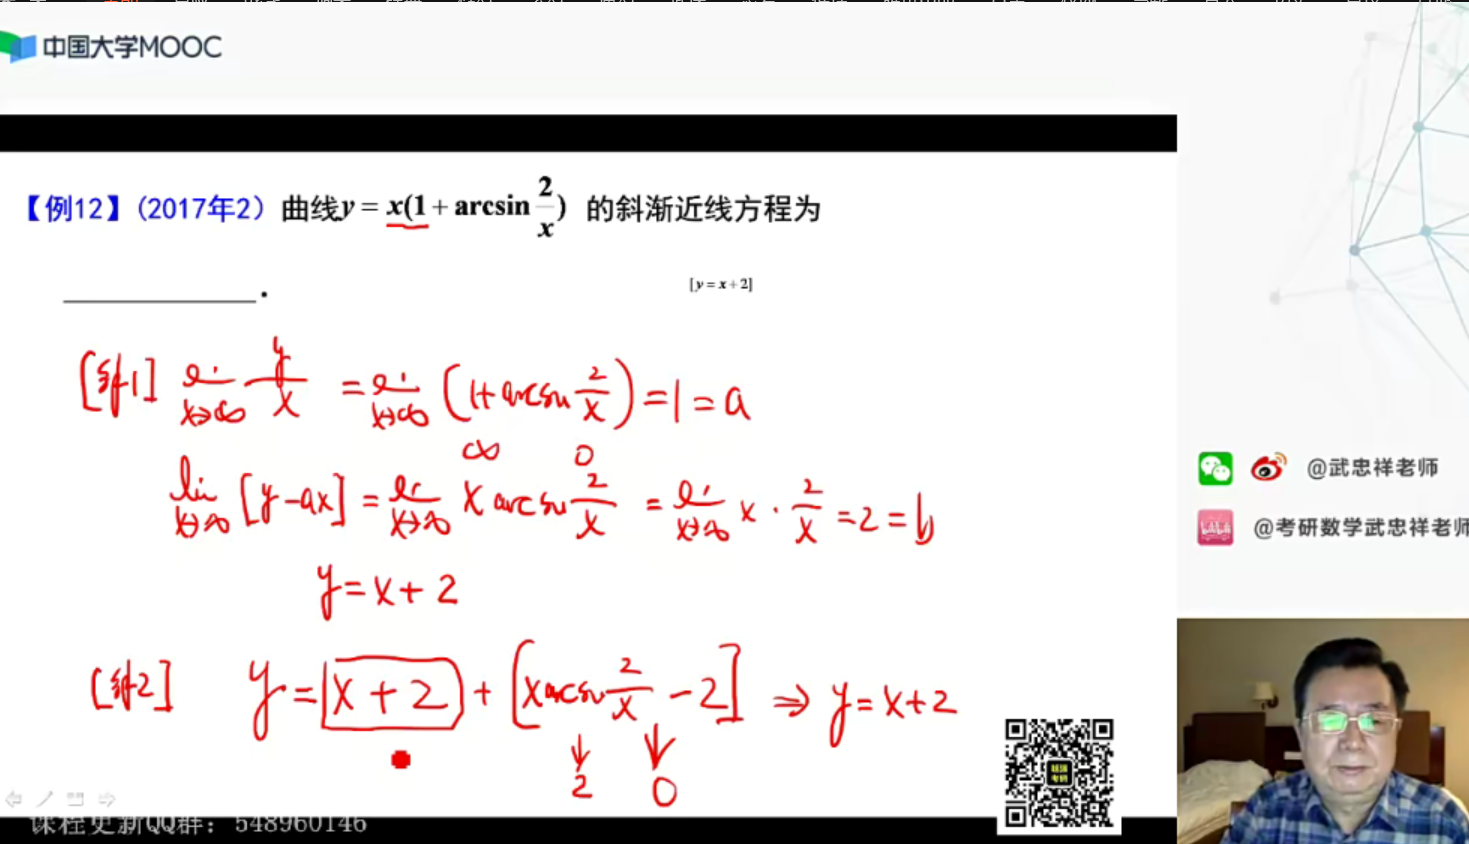 中国大学MOOC
【例12】(2017年2) 曲线y = x(1 + arcsin 2/x) 的斜渐近线方程为
____________.
[y = x + 2]
[解1] lim x→∞ y/x = lim x→∞ (1+ arcsin 2/x) = 1 = a
∞ 0
lim x→∞ [y-ax] = lim x→∞ x arcsin 2/x = lim x→∞ x · 2/x = 2 = b
y = x + 2
[解2] y = x + 2 + [x arcsin 2/x - 2] ⇒ y = x + 2
↓ ↓
2 0
@武忠祥老师
@考研数学武忠祥老师
课程更新QQ群：548960146